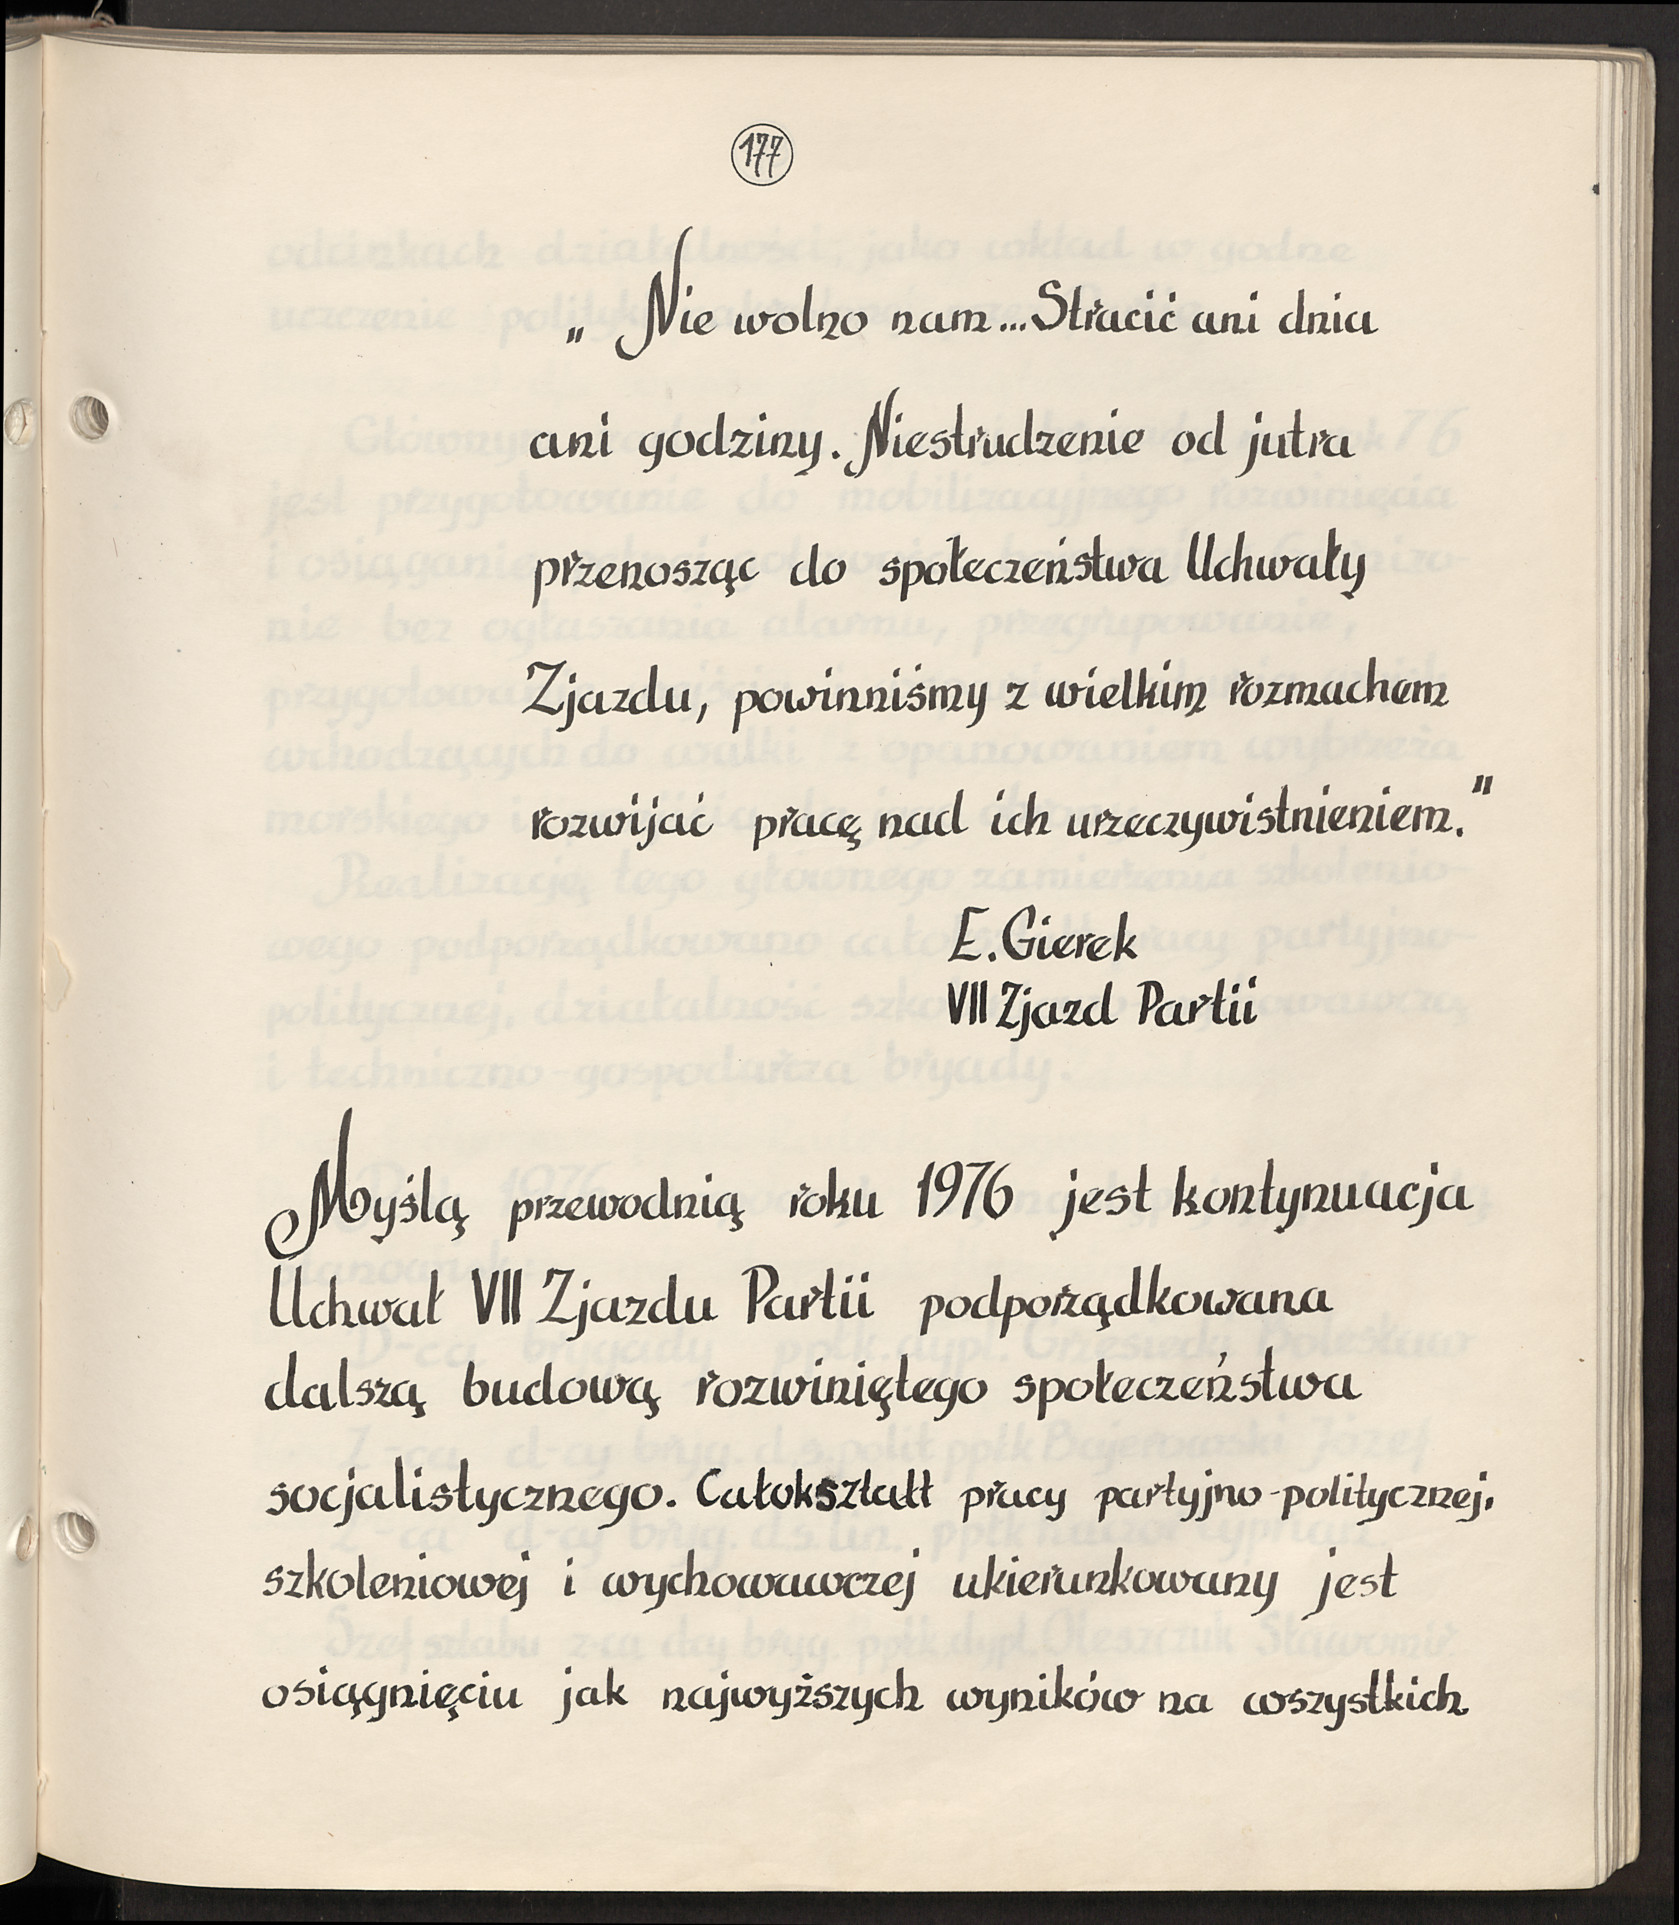 177
„Nie wolno nam... Stracić ani dnia
ani godziny. Niestrudzenie od jutra
przenosząc do społeczeństwa Uchwały
Zjazdu, powinniśmy z wielkim rozmachem
rozwijać pracę nad ich urzeczywistnieniem."
E. Gierek
VII Zjazd Partii
Myślą przewodnią roku 1976 jest kontynuacja
Uchwał VII Zjazdu Partii podporządkowana
dalszą budową rozwiniętego społeczeństwa
socjalistycznego. Całokształt pracy partyjno-politycznej,
szkoleniowej i wychowawczej ukierunkowany jest
osiągnięciu jak najwyższych wyników na wszystkich